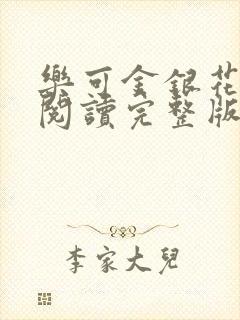 樂可金銀花
閱讀完整版
李家大兒